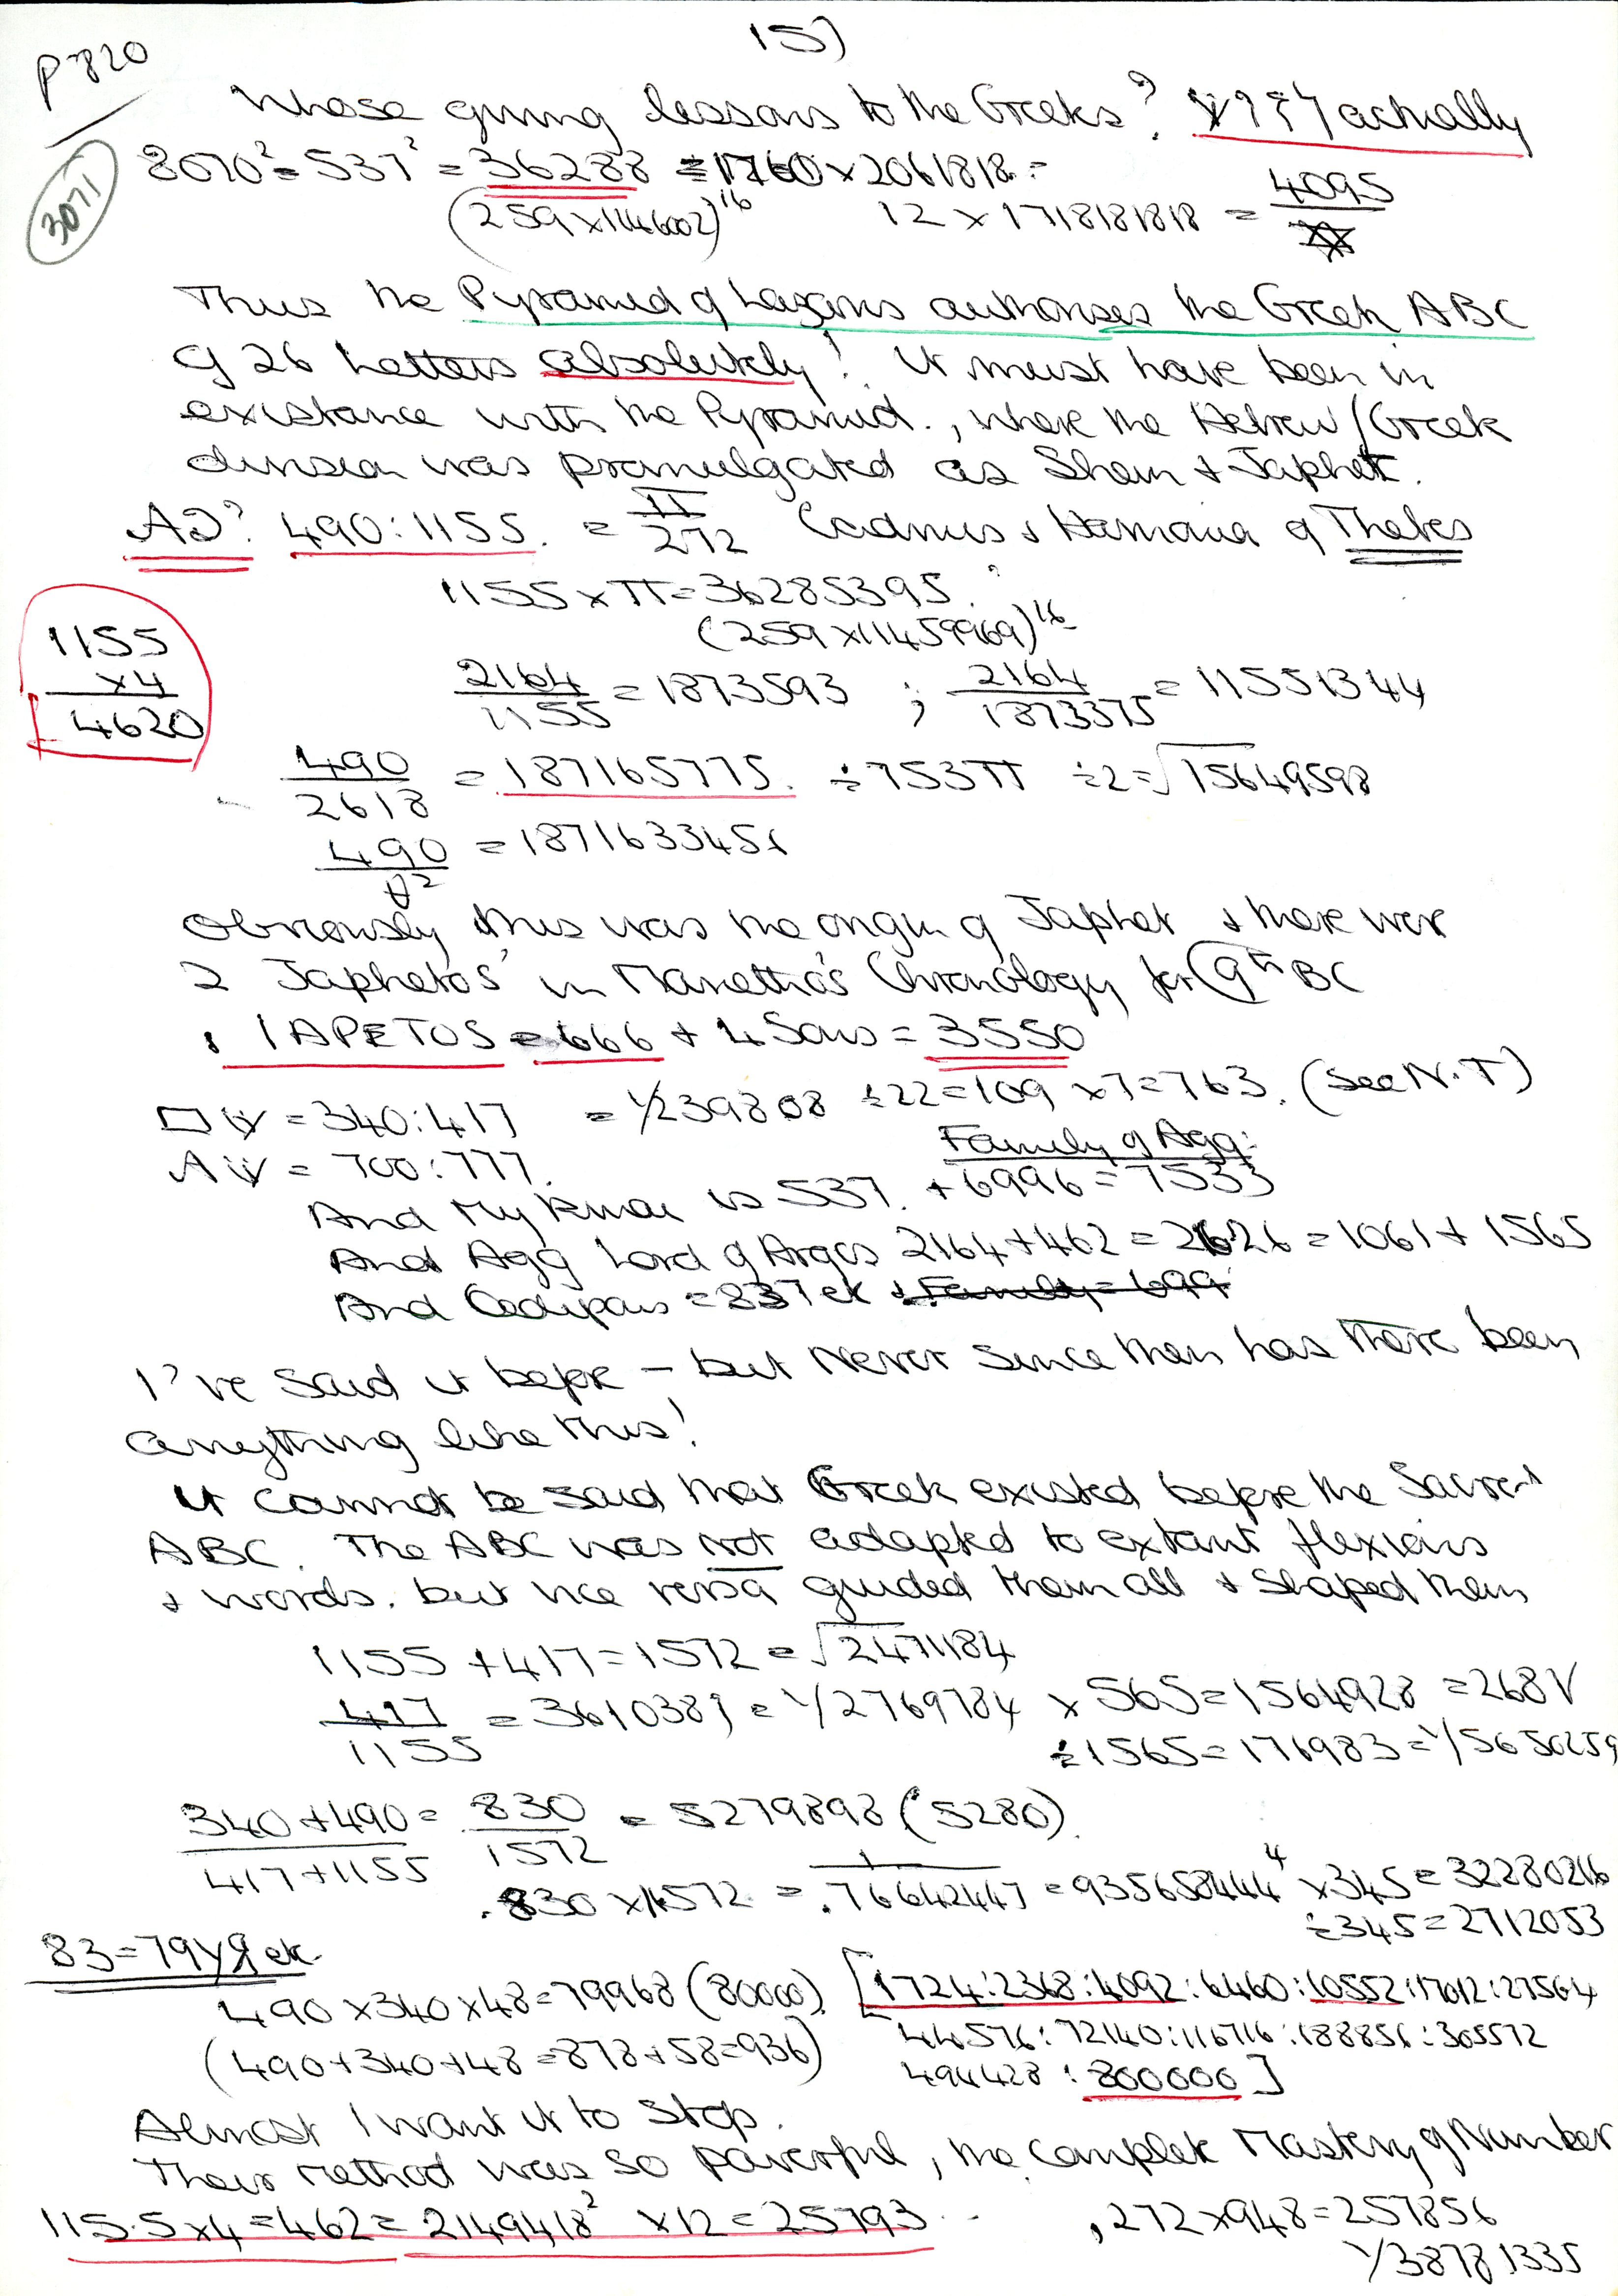 15)
P 820
3071
Whose giving lessons to the Greeks? actually
8070² = 537² = 36288 = 1760 × 2061818 =
(259 × 1146002)¹⁶ 12 × 171818181818 = 4095
Thus the Pyramid of authorises the Greek ABC
of 26 Letters absolutely! It must have been in
existance with the Pyramid., where the Hebrew/Greek
division was promulgated as Shem + Japhet.
AD? 490:1155. = π/272 Cadmus + of Thebes
1155 × π = 36285395.
(259 × 11459969)¹⁶
1155
×4
4620
2164/1155 = 1873593 ; 2164/1873375 = 11551344
490/2618 = 187165775. ÷ 753π ÷2 = √15649598
490/θ² = 1871633456
Obviously this was the origin of Japhet + there were
2 'Japhetos' in Manetho's Chronology for 9th BC
IAPETOS = 666 + 4 Sons = 3550
= 340:417 = 1/239808 ÷22=109 ×7=763. (See N.T)
= 700:777.
Family of Agg:
And My is 537. +6996=7533
And Agg Lord of Argos 2164+462=2626=1061+1565
And Oedipous = 837 ek + Family = 699
I've said it before – but Never since then has there been
anything like this!
It cannot be said that Greek existed before the Sacred
ABC. The ABC was not adapted to extant flexions
+ words. but vice versa guided them all + shaped them
1155 + 417 = 1572 = √2471184
417/1155 = 3610389 = 1/2769784 × 565 = 1564928 = 268V
÷1565 = 176983 = 1/5650259
340+490/417+1155 = 830/1572 = 5279898 (5280)
.830 × 1572 = 1/.76642447 = 935658444⁴ ×345 = 32280216
÷345 = 2712053
83 = 79 ek.
490 × 340 × 48 = 79968 (80000) [1724:2368:4092:6460:10552:17012:27564
44576:72140:116716:188856:305572
(490+340+48=878+58=936) 494428:800000]
Almost I want it to stop.
Their method was so powerful, the complete Mastery of Number
115.5×4=462=2149418² ×12=25793 .272×948=257856
1/38781335